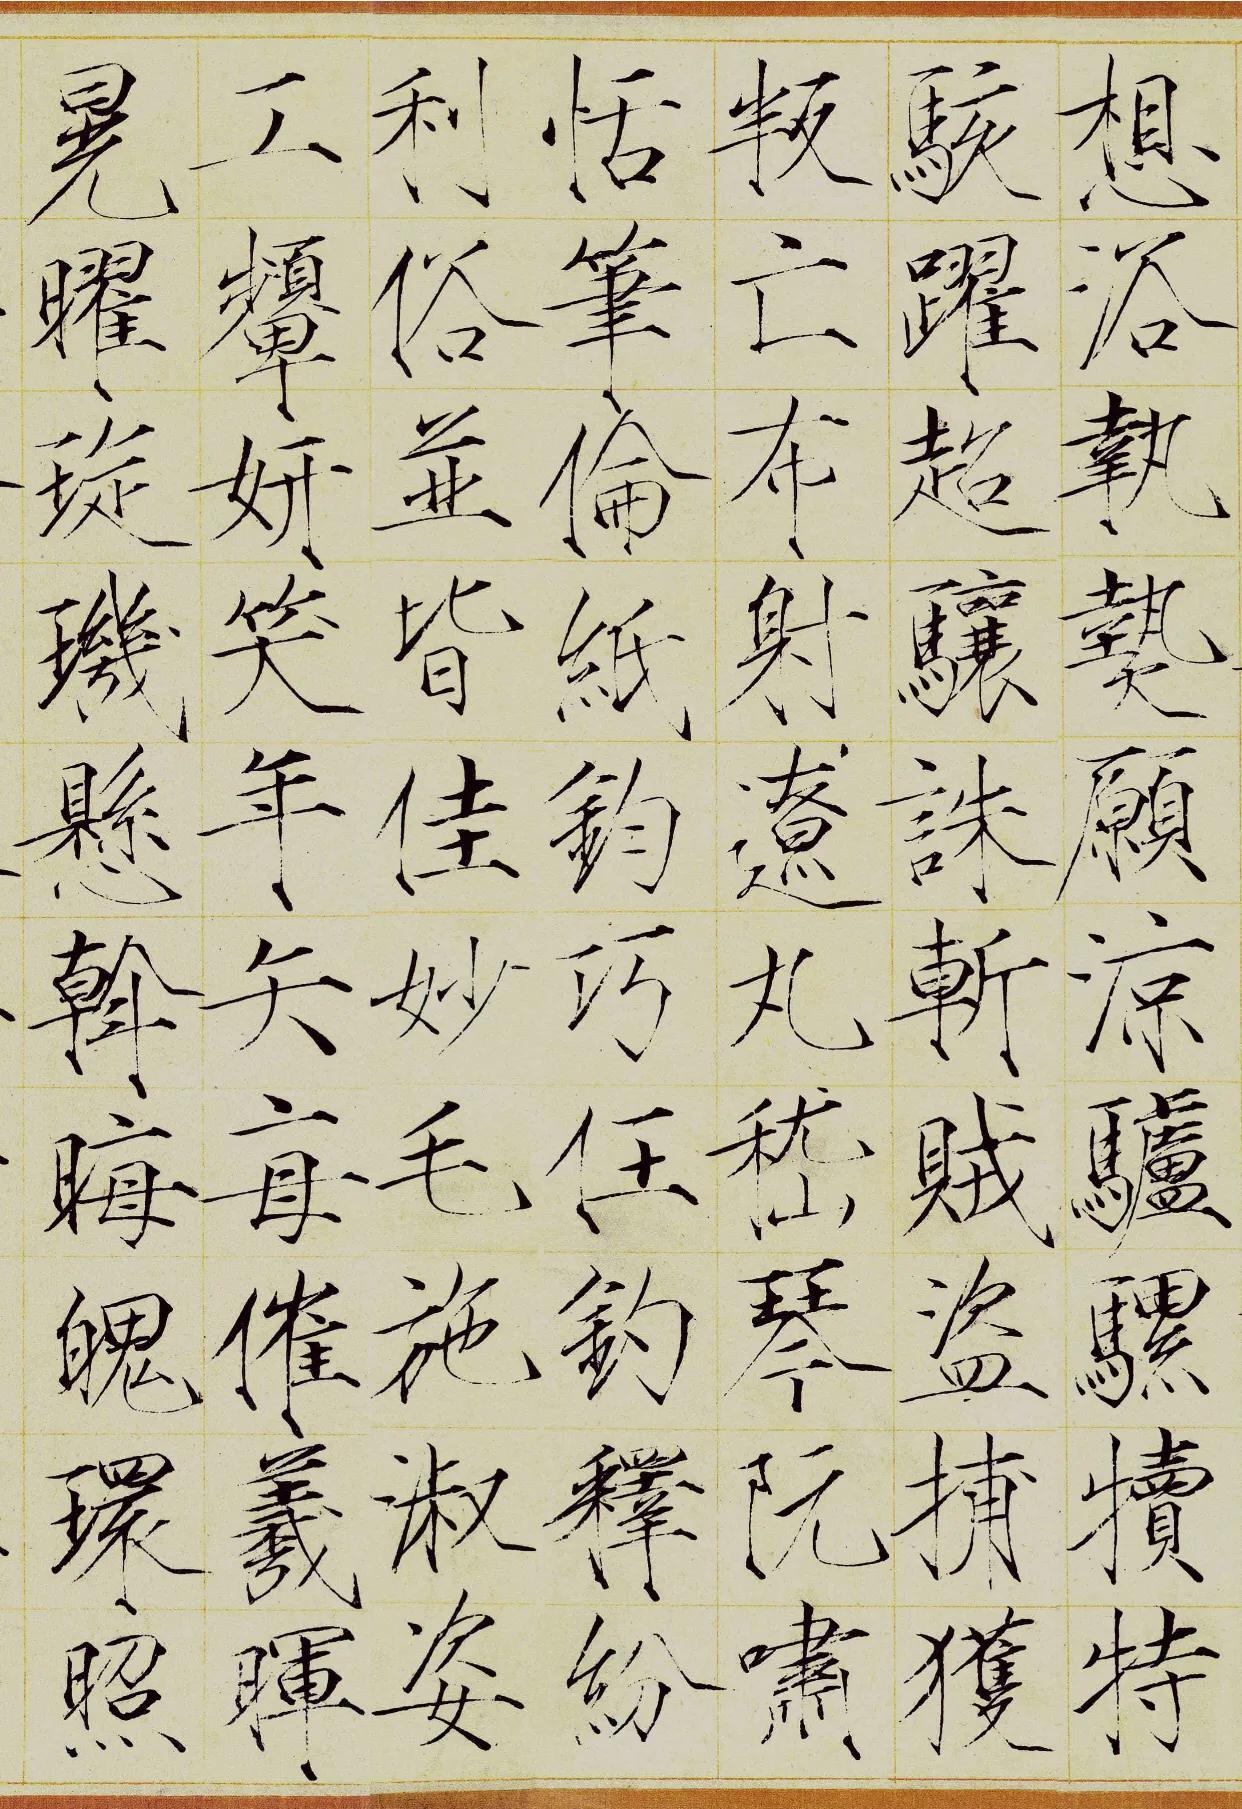 想浴執熱願涼驢騾犢特
駭躍超驤誅斬賊盜捕獲
叛亡布射遼丸嵇琴阮嘯
恬筆倫紙鈞巧任釣釋紛
利俗並皆佳妙毛施淑姿
工顰妍笑年矢每催羲暉
晃曜琁璣懸斡晦魄環照